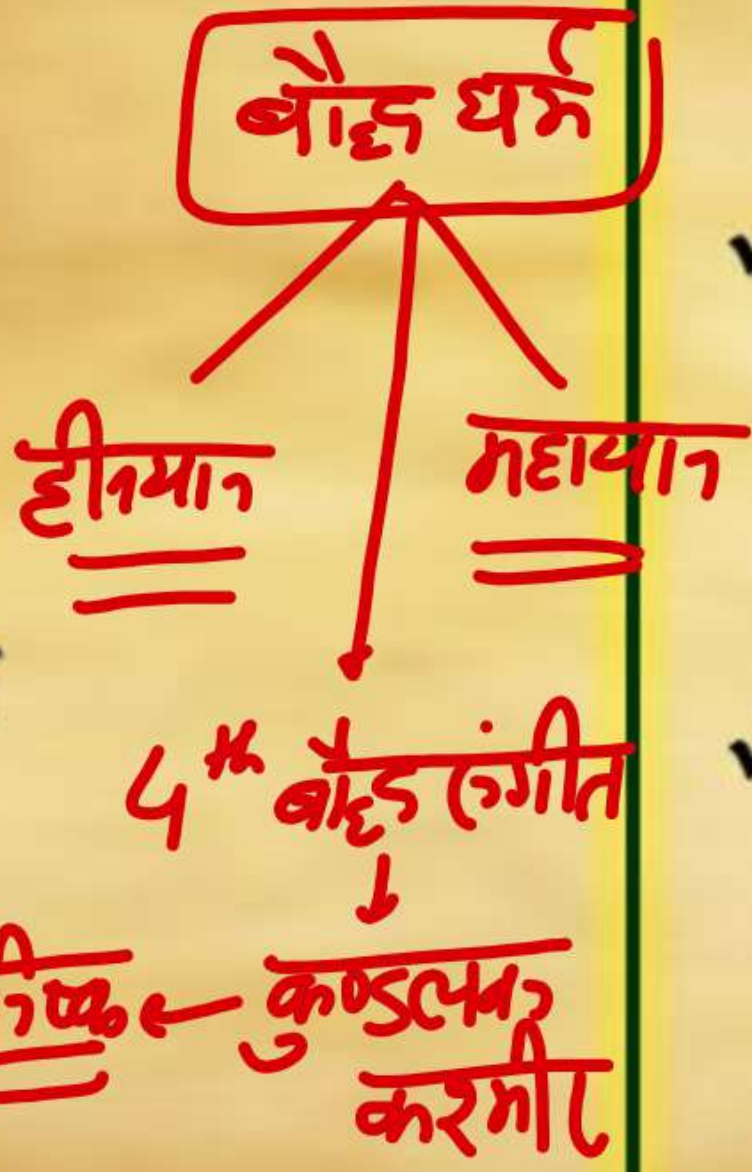 बौद्ध धर्म
हीनयान महायान
4th बौद्ध संगीत
कुण्डलवन
कश्मीर